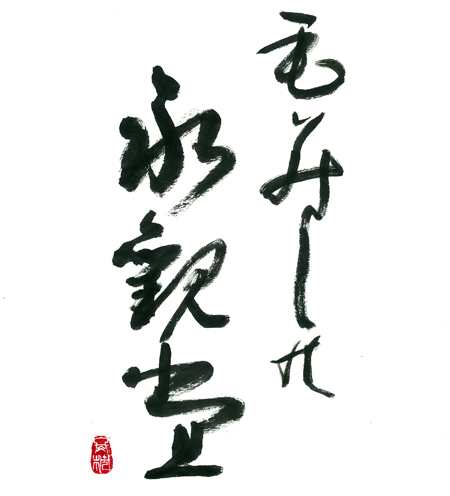 もみじの
永観堂